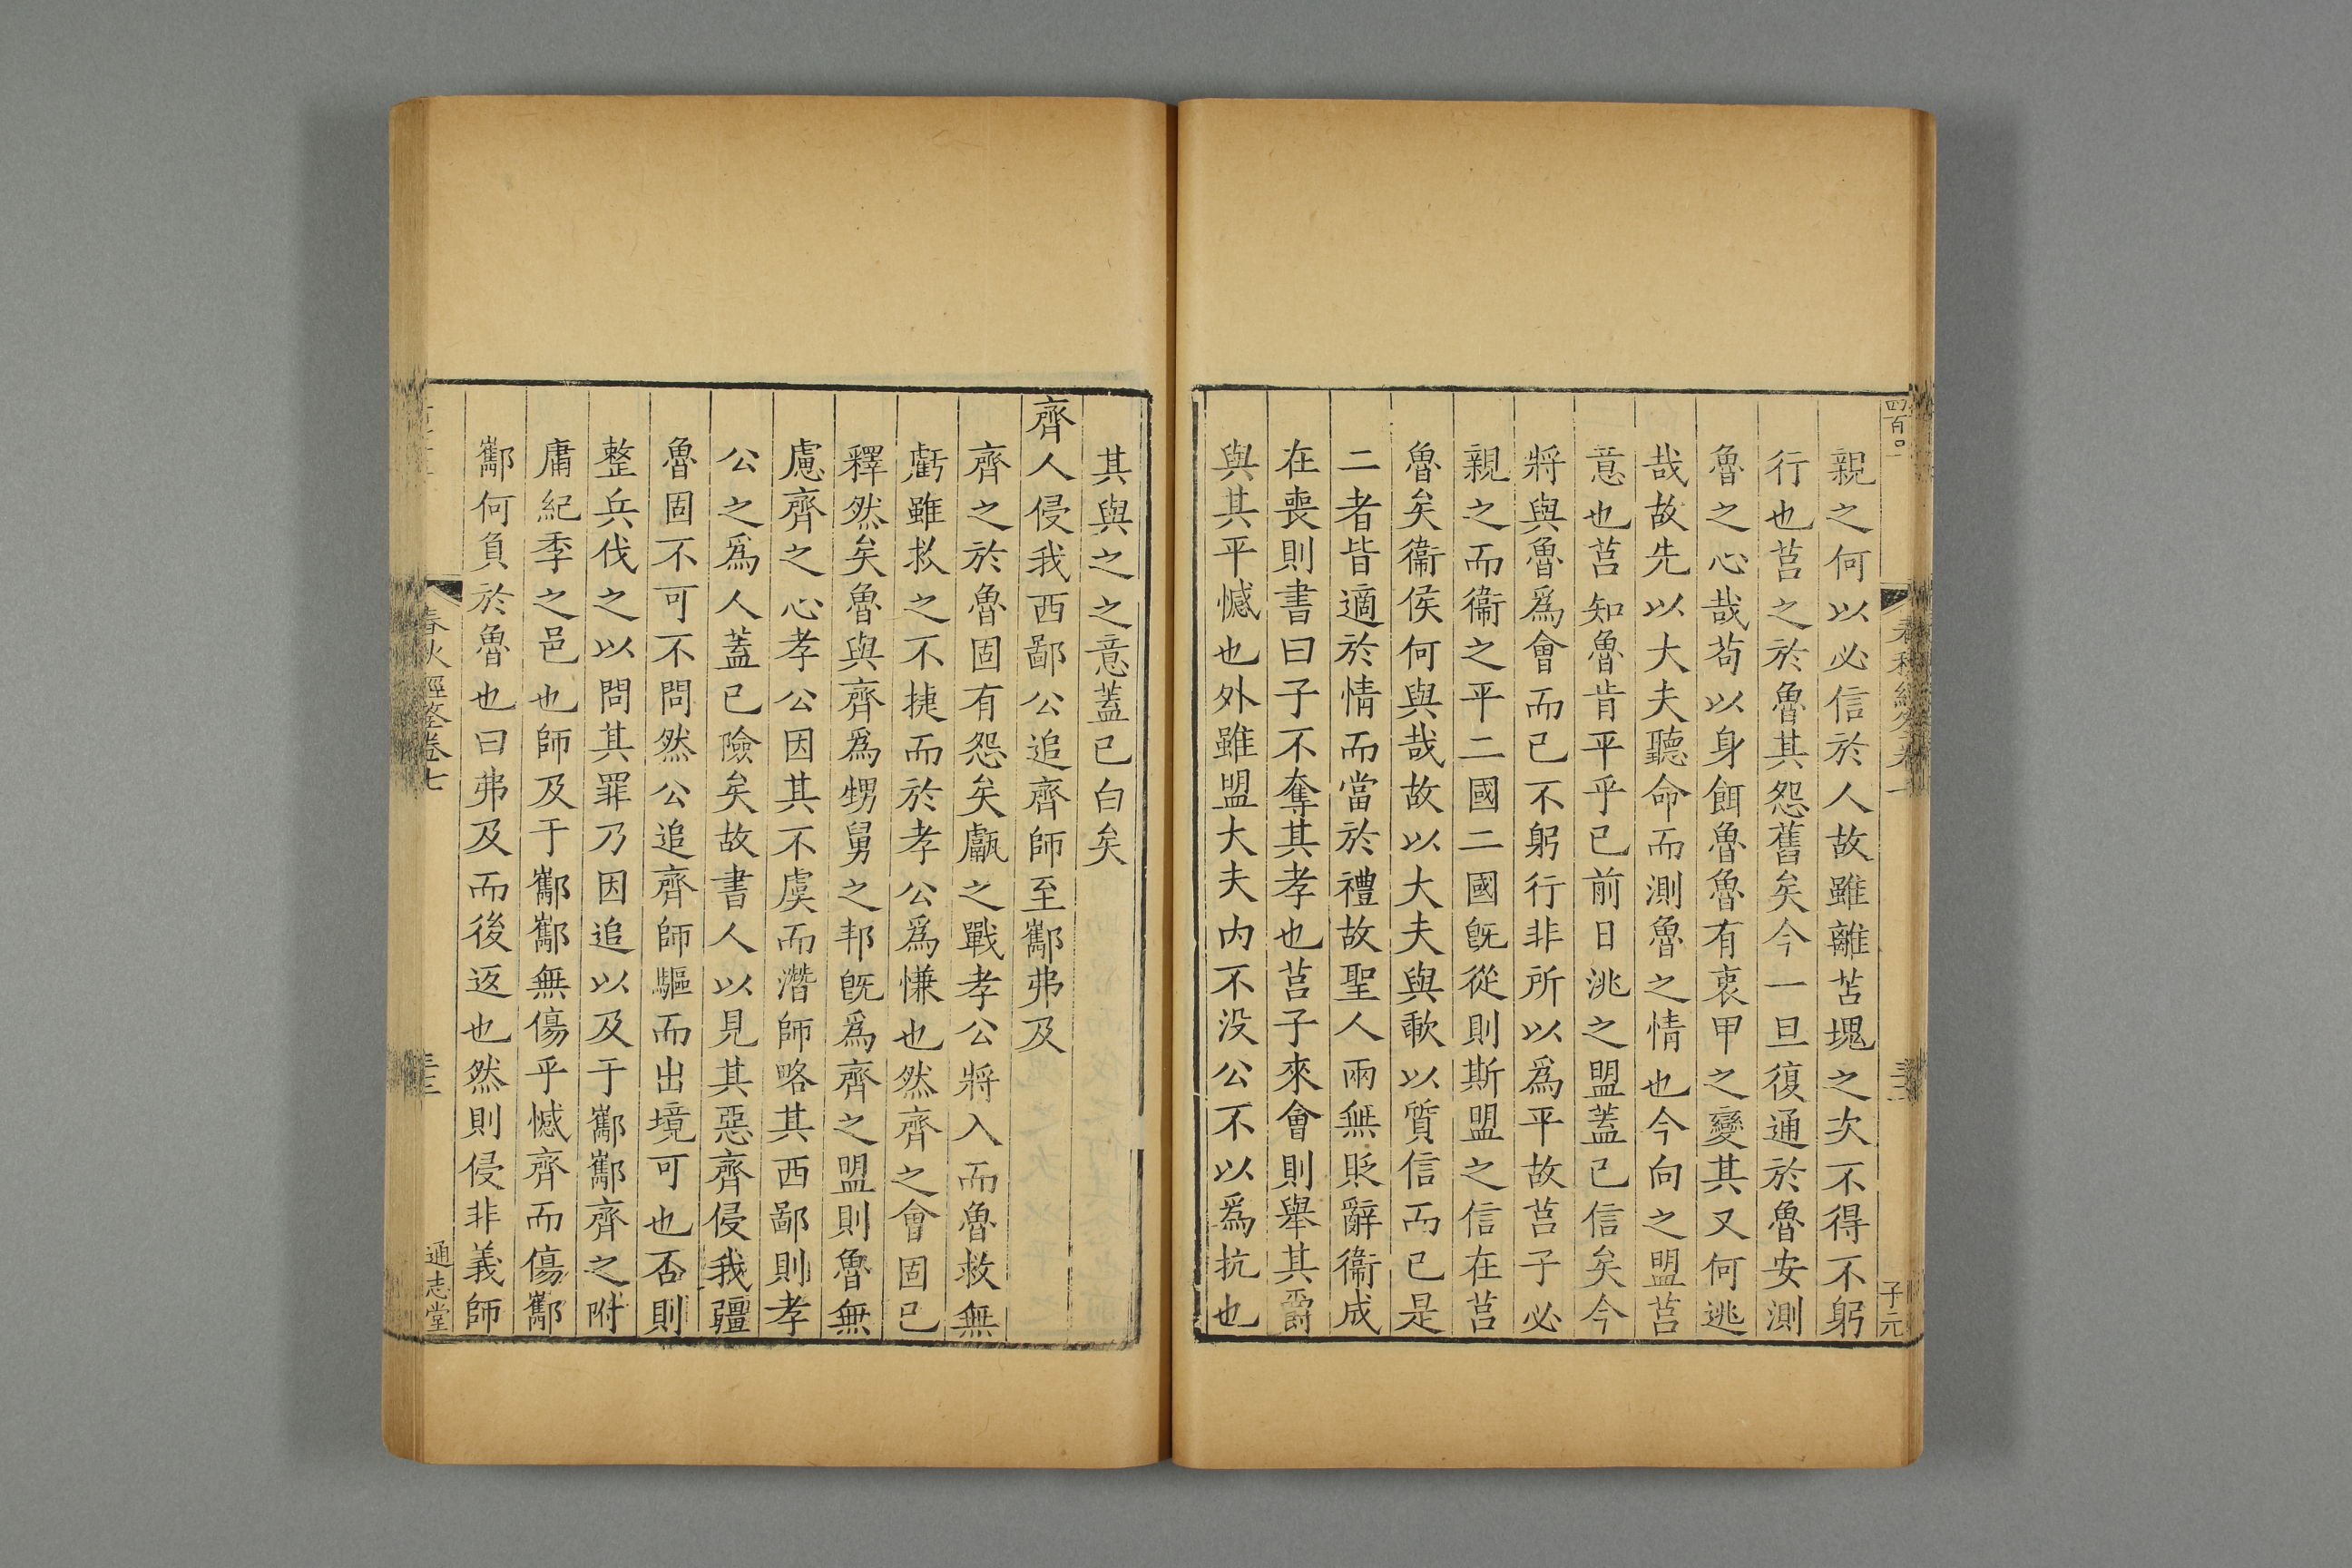 親之何以必信於人故雖離苫塊之次不得不躬
行也莒之於魯其怨舊矣今一旦復通於魯安測
魯之心哉苟以身餌魯魯有衷甲之變其又何逃
哉故先以大夫聽命而測魯之情也今向之盟莒
意也莒知魯肯平乎已前日洮之盟蓋已信矣今
將與魯爲會而已不躬行非所以爲平故莒子必
親之而衞之平二國二國旣從則斯盟之信在莒
魯矣衞侯何與哉故以大夫與歃以質信而已是
二者皆適於情而當於禮故聖人兩無貶辭衞成
在喪則書曰子不奪其孝也莒子來會則舉其爵
與其平憾也外雖盟大夫內不沒公不以爲抗也
子元
其與之之意蓋已白矣
齊人侵我西鄙公追齊師至酅弗及
齊之於魯固有怨矣甗之戰孝公將入而魯救無
虧雖救之不捷而於孝公爲慊也然齊之會固已
釋然矣魯與齊爲甥舅之邦旣爲齊之盟則魯無
慮齊之心孝公因其不虞而潛師略其西鄙則孝
公之爲人蓋已險矣故書人以見其惡齊侵我疆
魯固不可不問然公追齊師驅而出境可也否則
整兵伐之以問其罪乃因追以及于酅酅齊之附
庸紀季之邑也師及于酅酅無傷乎憾齊而傷酅
酅何負於魯也曰弗及而後返也然則侵非義師
春秋經筌卷七
通志堂